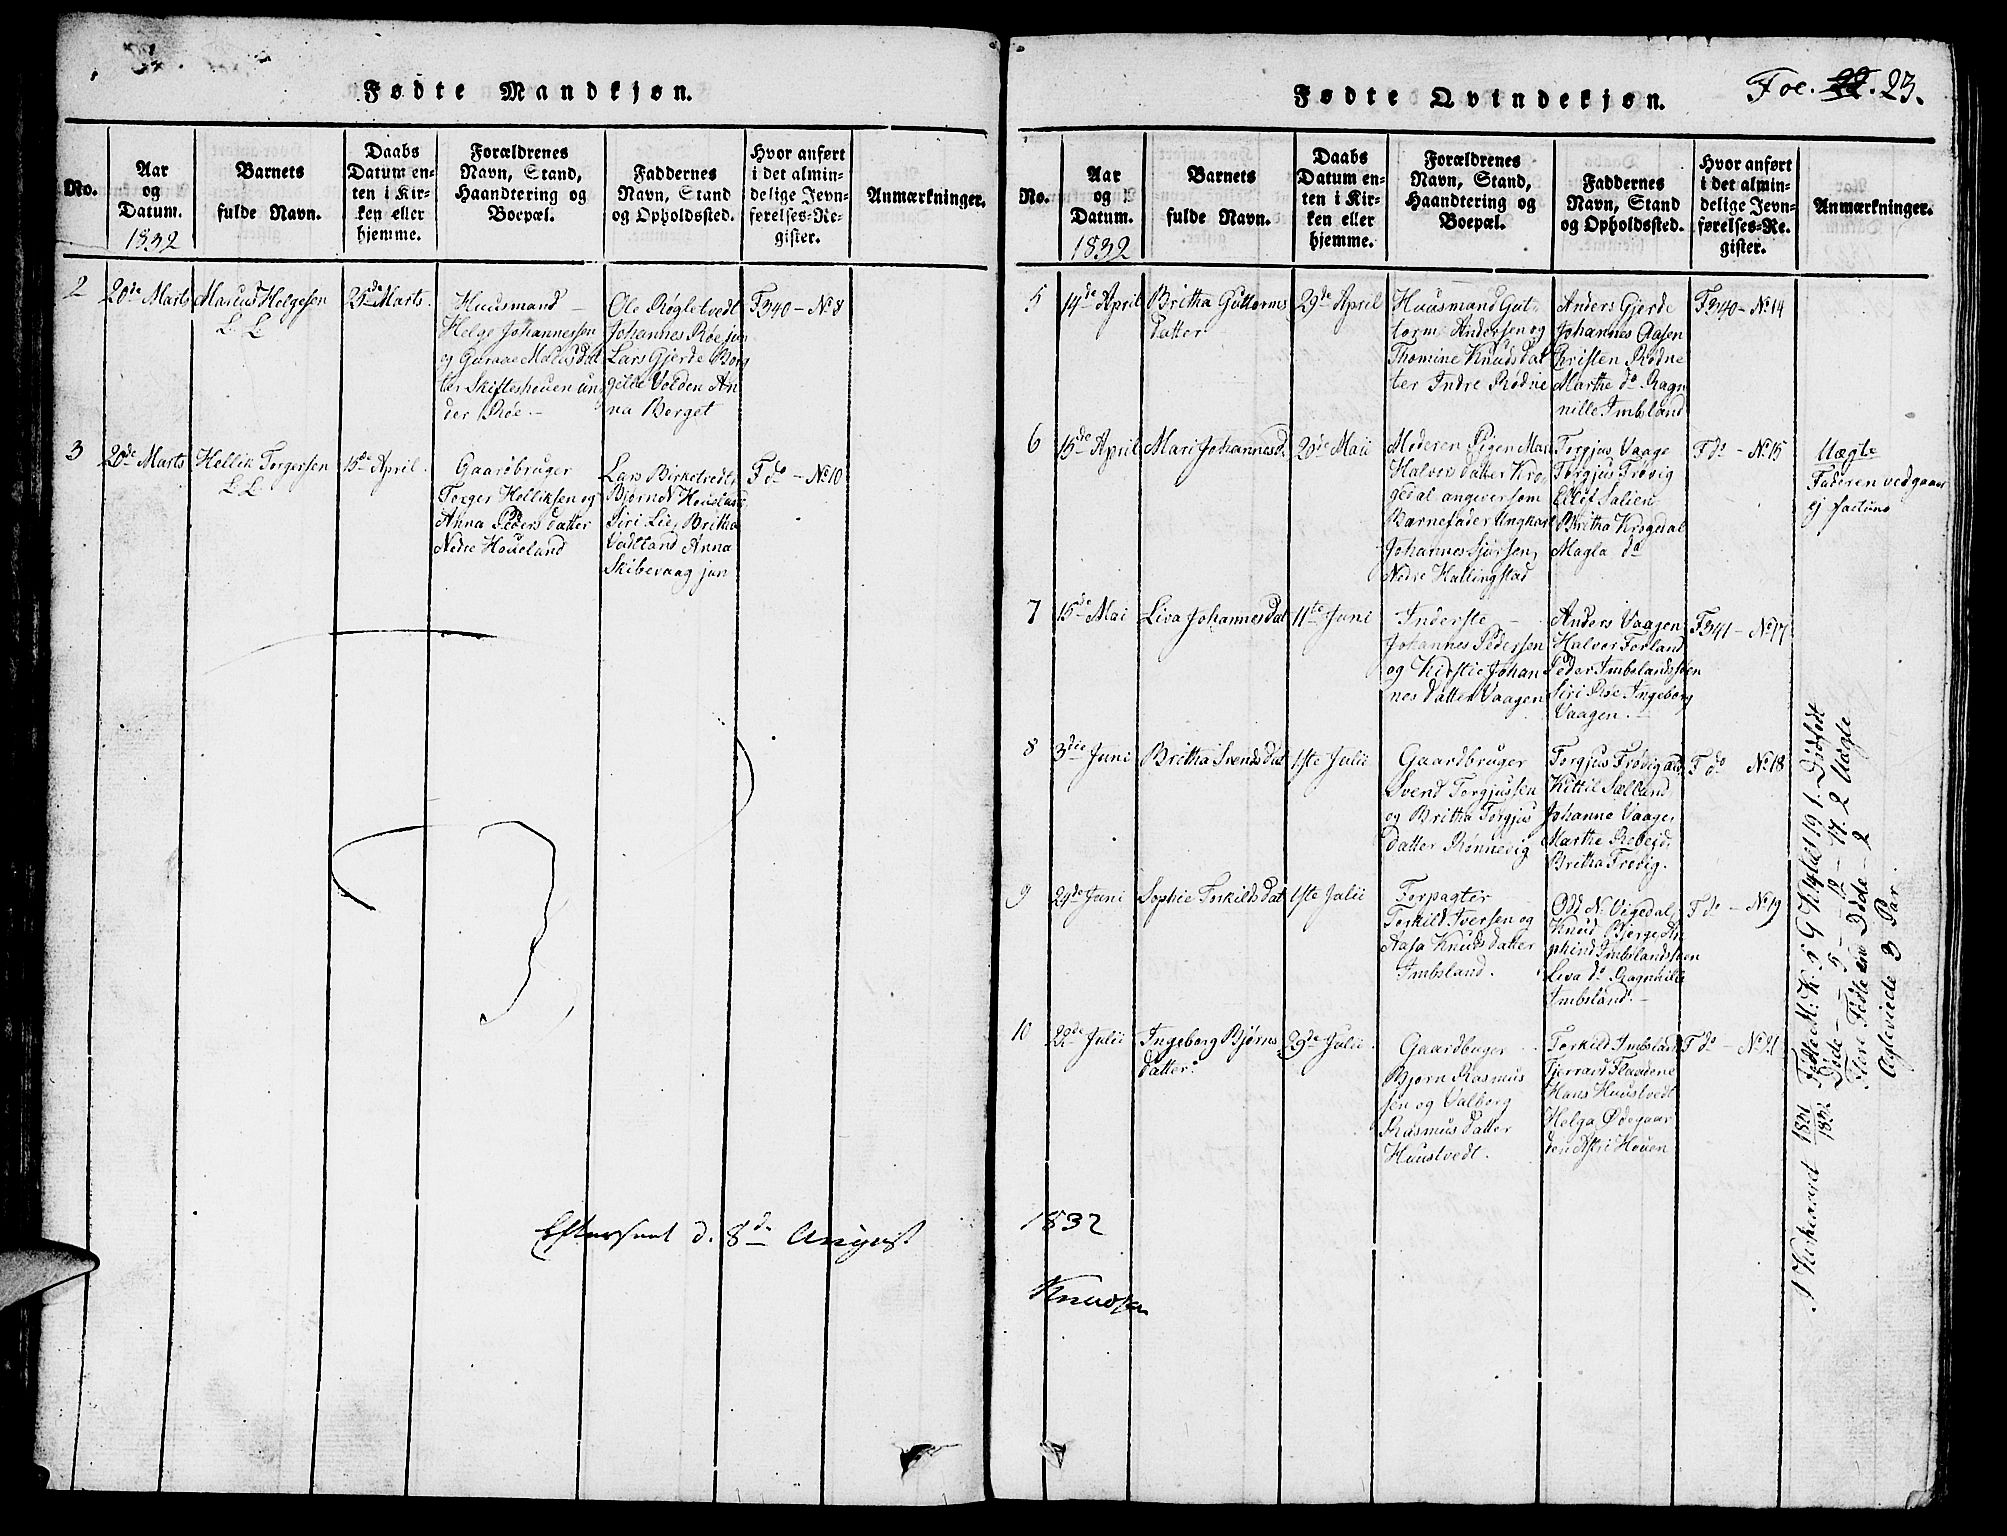 Fødte Mandkjøn.
No.
Aar
og
Datum.
1832
Barnets
fulde Navn.
Daabs
Datum en-
ten i Kir-
ken eller
hjemme.
Forældrenes
Navn, Stand,
Haandtering og
Boepæl.
Faddernes
Navn, Stand
og Opholdssted.
Hvor anført
i det almin-
delige Jevn-
førelses-Re-
gister.
Anmærkninger.
2
20de Marts
Marcus Helgesen
L L
25de Marts.
Huusmand
Helge Johannessen
og Guroae Matiasdat
ter Skifteshouen un
der Røe.
Ole Røgletvedt
Johannes Røe jun
Lars Gjerde Bor
gilde Volden An
na Berget
F340 - No 8
3
20de Marts
Hellik Torgersen
L L
15de April.
Gaardbruger
Torger Helliksen og
Anna Peders datter
Nedre Houeland
Lars Birketvedt,
Bjørn N Houeland
Siri Lie, Britha
Vadtland Anna
Skibevaag jun
F do - No 10
Efterseet d. 8de August
Fødte Qvindekjøn.
Foe. 22. 23.
No.
Aar
og
Datum.
1832
Barnets
fulde Navn.
Daabs
Datum en-
ten i Kir-
ken eller
hjemme.
Forældrenes
Navn, Stand,
Haandtering og
Boepæl.
Faddernes
Navn, Stand
og Opholdssted.
Hvor anført
i det almin-
delige Jevn-
førelses-Re-
gister.
Anmærkninger.
5
14de April
Britha Guttorms
datter
29de April
Huusmand Gut
torm Andersen og
Thomine Knudsdat
ter Indre Rødne
Anders Gjerde
Johannes Aasen
Christen Rødne
Marthe do Ragn
nille Imbsland
F340 - No 14
6
15de April
Mari Johannesd.
20de Maii
Moderen Pigen Mari
Halvors datter Kro
gedal angiver som
Barnefader Ungkarl
Johannes Sjursen,
Nedre Hallingstad
Torgjus Vaage
Torgjus Frøvig
Eilet Salien
Britha Krogedal
Magla do
F do - No 15
Uægte
Faderen vedgaaer
ej factum
7
15de Mai
Liva Johannesdat
11te Juni
Inderste
Johannes Pedersen
og Kirstie Johan
nes datter Vaagen
Anders Vaagen
Halvor Førland
Peder Imbslandssøen
Siri Røe Ingeborg
Vaagen.
F341 - No 17
8
3die Juni
Britha Svendsdat
1ste Julii
Gaardbruger
Svend Torgjussen
og Britha Torgjus
datter Rønnevig
Torgjus Frøvig
Kittil Sælland
Johanne Vaage,
Marthe
Britha Frøvig.
F do No 18
9
29de Juni
Sophie Torkildsdat
1ste Julii
Forpagter
Torkild Iversen og
Aasa Knudsdatter
Imbsland.
Odd N. Vigedal,
Knud Bjørge
Imbslandssøen
Liva do Ragnhille
Imbsland.
F do - No 19
10
22de Julii
Ingeborg Bjørns
datter
29de Julii.
Gaardbuger
Bjørn Rasmus
sen og Valborg
Rasmus datter
Huustvedt.
Torkild Imbsland
Tjerrand Flaadene
Hans Huustvedt
Helga Ødegaar
den Astri Houen
F do - No 21
1832
Knudsen
I Kirkeaaret 1831 Fødte M: K: 5 Q K: 14 tilst 19 1. Dødfødt
1832 Døde 5 - 12 - 17. 2 Uægte
Flere Fødte en Døde - 2
Agteviede 3 Par.